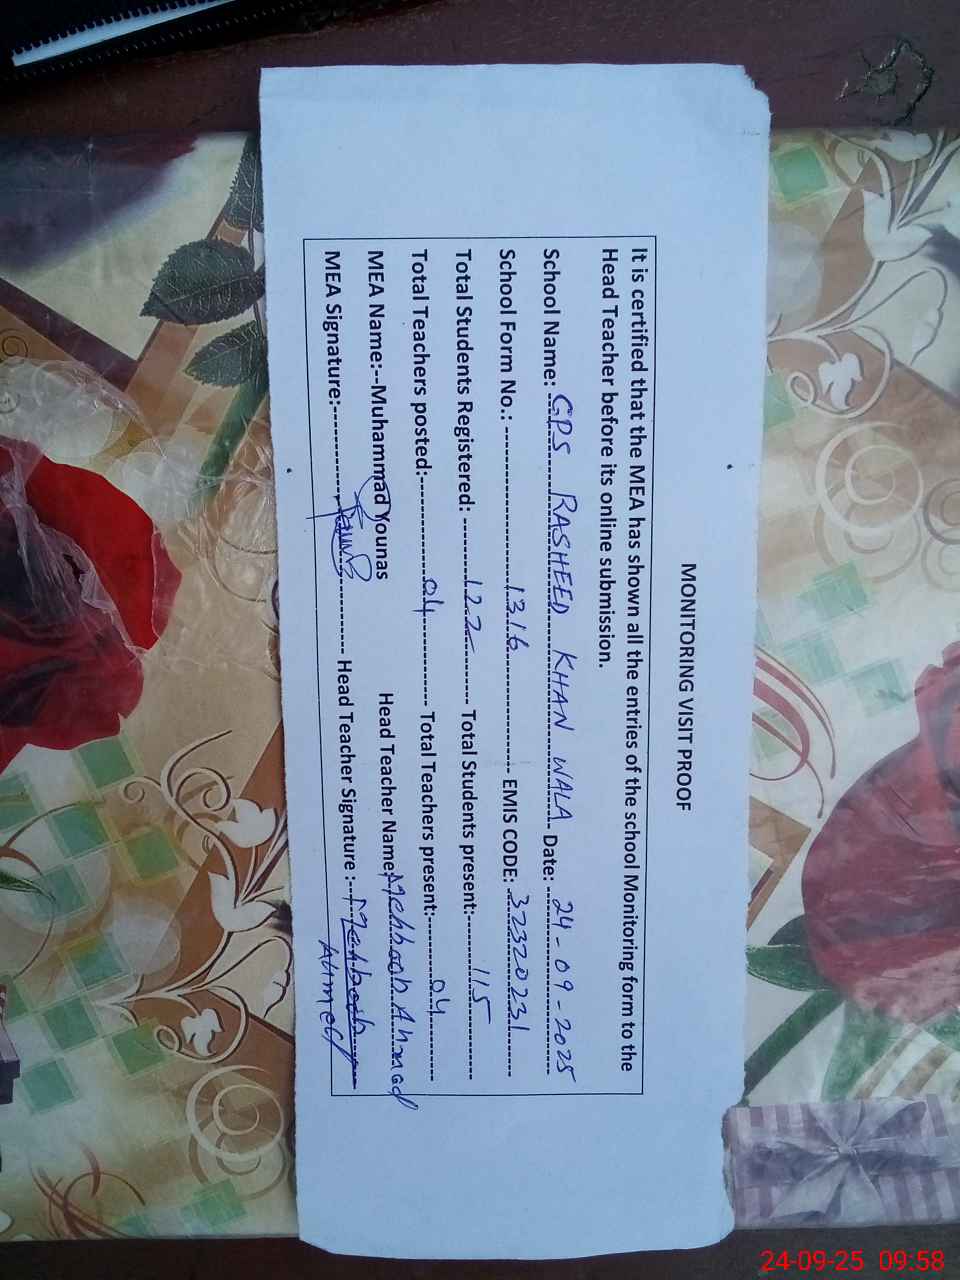 MONITORING VISIT PROOF
It is certified that the MEA has shown all the entries of the school Monitoring form to the
Head Teacher before its online submission.
School Name: GPS RASHEED KHAN WALA Date: 24-09-2025
School Form No.: 1316 EMIS CODE: 32320231
Total Students Registered: 122 Total Students present: 115
Total Teachers posted: 04 Total Teachers present: 04
MEA Name:--Muhammad Younas Head Teacher Name: Mehboob Ahmad
MEA Signature: Head Teacher Signature : Mehboob
Ahmed
24-09-25 09:58